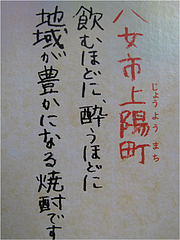 八女市上陽町
じょうようまち
飲むほどに、酔うほどに
地域が豊かになる焼酎です